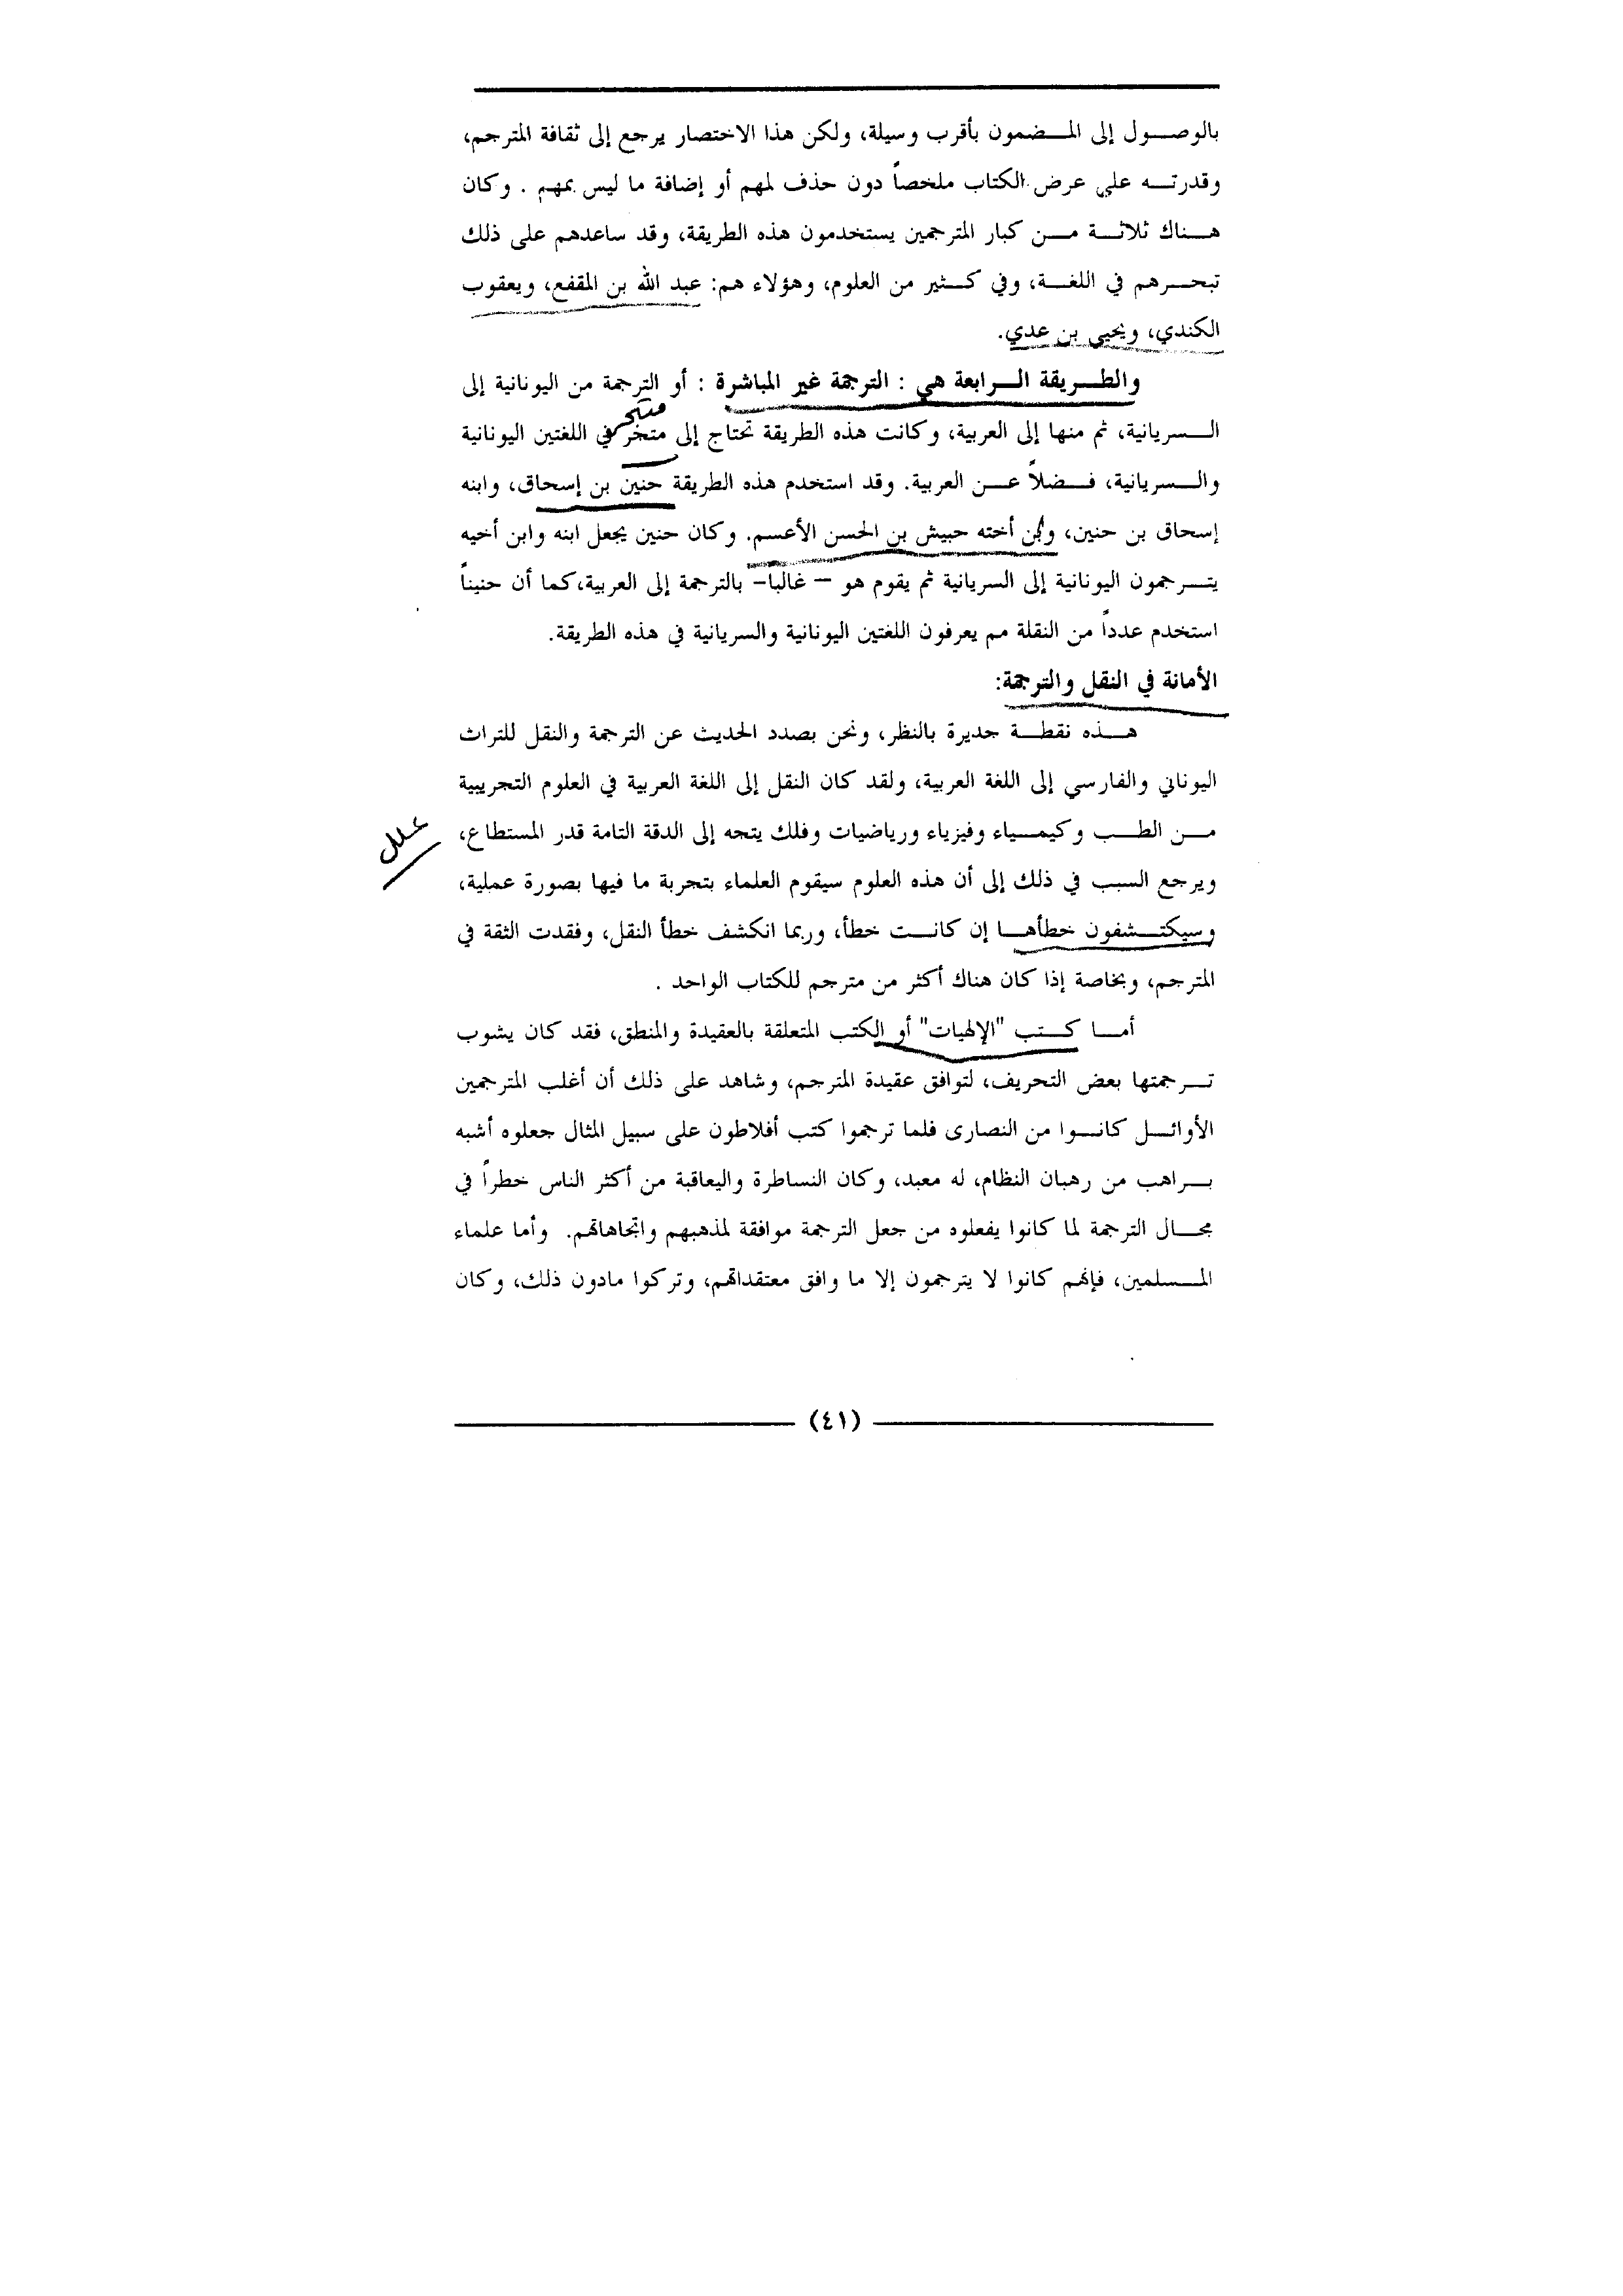 بالوصول إلى المضمون بأقرب وسيلة، ولكن هذا الاختصار يرجع إلى ثقافة المترجم،
وقدرته على عرض الكتاب ملخصاً دون حذف لمهم أو إضافة ما ليس بمهم . وكان
هناك ثلاثة من كبار المترجمين يستخدمون هذه الطريقة، وقد ساعدهم على ذلك
تبحرهم في اللغة، وفي كثير من العلوم، وهؤلاء هم: عبد الله بن المقفع، ويعقوب
الكندي، ويحيى بن عدي.
والطريقة الرابعة هي : الترجمة غير المباشرة : أو الترجمة من اليونانية إلى
متبحر
السريانية، ثم منها إلى العربية، وكانت هذه الطريقة تحتاج إلى متخر في اللغتين اليونانية
والسريانية، فضلاً عن العربية. وقد استخدم هذه الطريقة حنين بن إسحاق، وابنه
إسحاق بن حنين، وابن أخته حبيش بن الحسن الأعسم. وكان حنين يجعل ابنه وابن أخيه
يترجمون اليونانية إلى السريانية ثم يقوم هو – غالبا– بالترجمة إلى العربية،كما أن حنيناً
استخدم عدداً من النقلة مم يعرفون اللغتين اليونانية والسريانية في هذه الطريقة.
الأمانة في النقل والترجمة:
هذه نقطة جديرة بالنظر، ونحن بصدد الحديث عن الترجمة والنقل للتراث
اليوناني والفارسي إلى اللغة العربية، ولقد كان النقل إلى اللغة العربية في العلوم التجريبية
من الطب وكيمياء وفيزياء ورياضيات وفلك يتجه إلى الدقة التامة قدر المستطاع،
علل
ويرجع السبب في ذلك إلى أن هذه العلوم سيقوم العلماء بتجربة ما فيها بصورة عملية،
وسيكتشفون خطأها إن كانت خطأ، وربما انكشف خطأ النقل، وفقدت الثقة في
المترجم، وبخاصة إذا كان هناك أكثر من مترجم للكتاب الواحد .
أما كتب "الإلهيات" أو الكتب المتعلقة بالعقيدة والمنطق، فقد كان يشوب
ترجمتها بعض التحريف، لتوافق عقيدة المترجم، وشاهد على ذلك أن أغلب المترجمين
الأوائل كانوا من النصارى فلما ترجموا كتب أفلاطون على سبيل المثال جعلوه أشبه
براهب من رهبان النظام، له معبد، وكان النساطرة واليعاقبة من أكثر الناس خطراً في
مجال الترجمة لما كانوا يفعلوه من جعل الترجمة موافقة لمذهبهم واتجاهاتهم. وأما علماء
المسلمين، فإنهم كانوا لا يترجمون إلا ما وافق معتقداتهم، وتركوا مادون ذلك، وكان
(٤١)